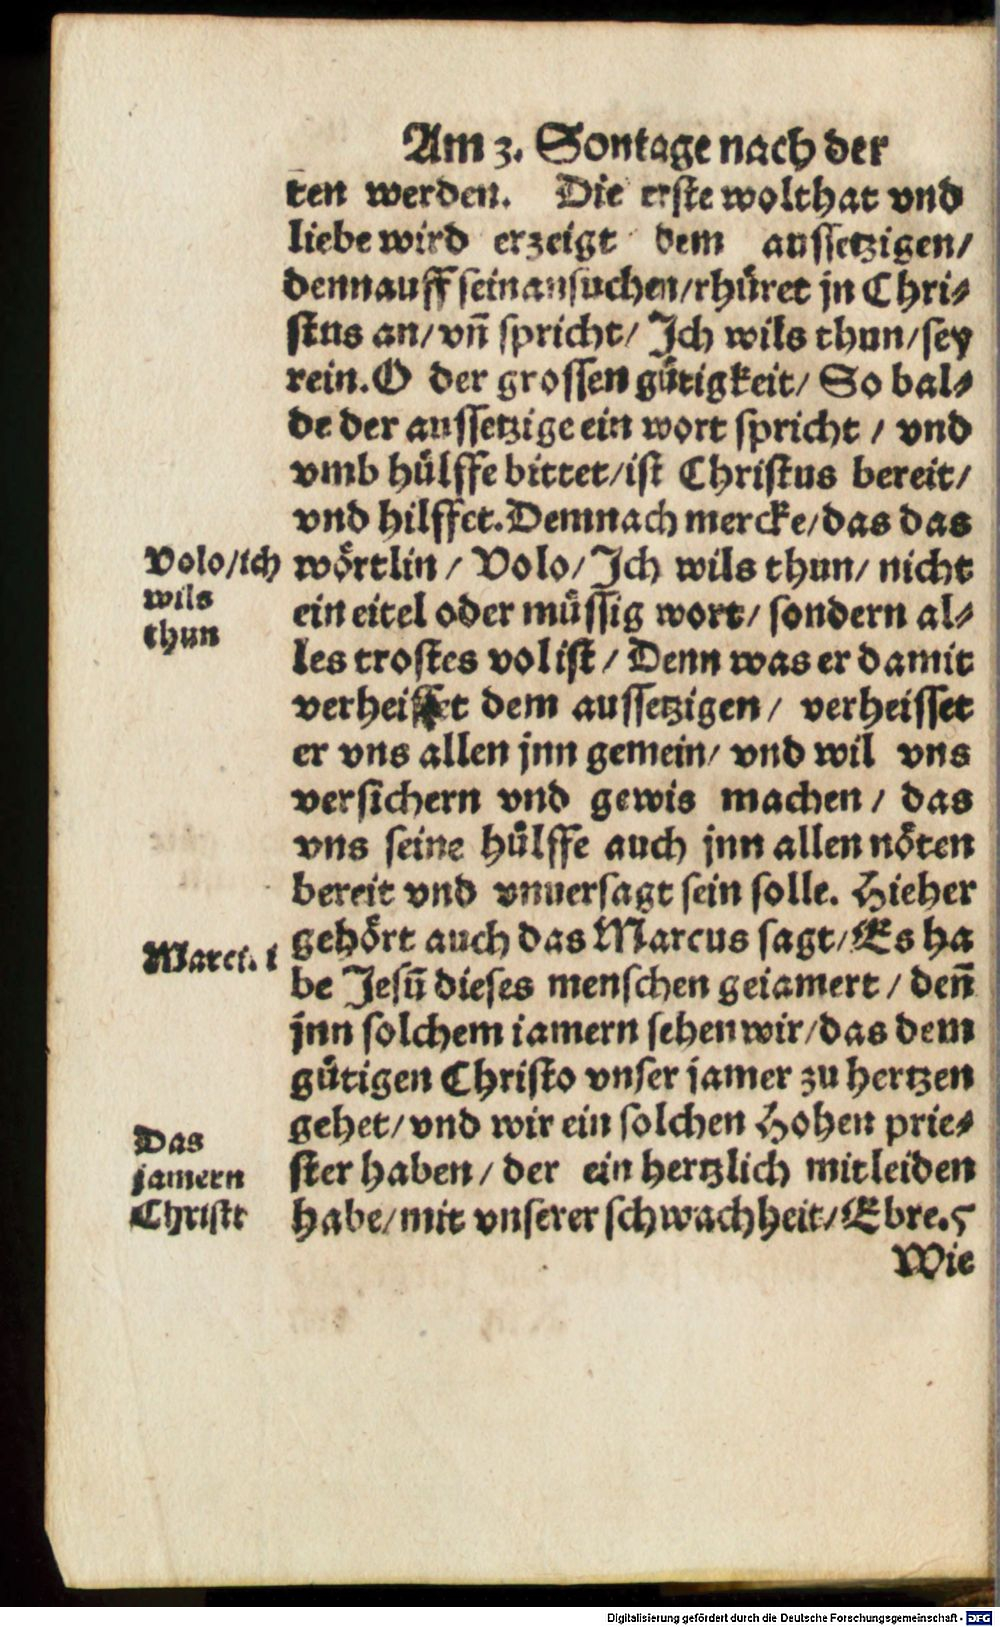 Am 3. Sontage nach der
ten werden. Die erste wolthat vnd
liebe wird erzeigt dem aussetzigen/
denn auff sein ansuchen/rhüret jn Chri⸗
stus an/vn̄ spricht/Ich wils thun/sey
rein. O der grossen gütigkeit/So bal⸗
de der aussetzige ein wort spricht/vnd
vmb hülffe bittet/ist Christus bereit/
vnd hilffet. Demnach mercke/das das
Volo/ich
wils
thun
wörtlin/Volo/Ich wils thun/nicht
ein eitel oder müssig wort/sondern al⸗
les trostes vol ist/Denn was er damit
verheisset dem aussetzigen/verheisset
er vns allen jnn gemein/vnd wil vns
versichern vnd gewis machen/das
vns seine hülffe auch jnn allen nöten
bereit vnd vnuersagt sein solle. Hieher
Marci. 1
gehört auch das Marcus sagt/Es ha
be Jesū dieses menschen geiamert/den̄
jnn solchem iamern sehen wir/das dem
gütigen Christo vnser jamer zu hertzen
gehet/vnd wir ein solchen Hohen prie⸗
Das
jamern
Christi
ster haben/der ein hertzlich mitleiden
habe/mit vnserer schwachheit/Ebre. 5
Wie
Digitalisierung gefördert durch die Deutsche Forschungsgemeinschaft - DFG